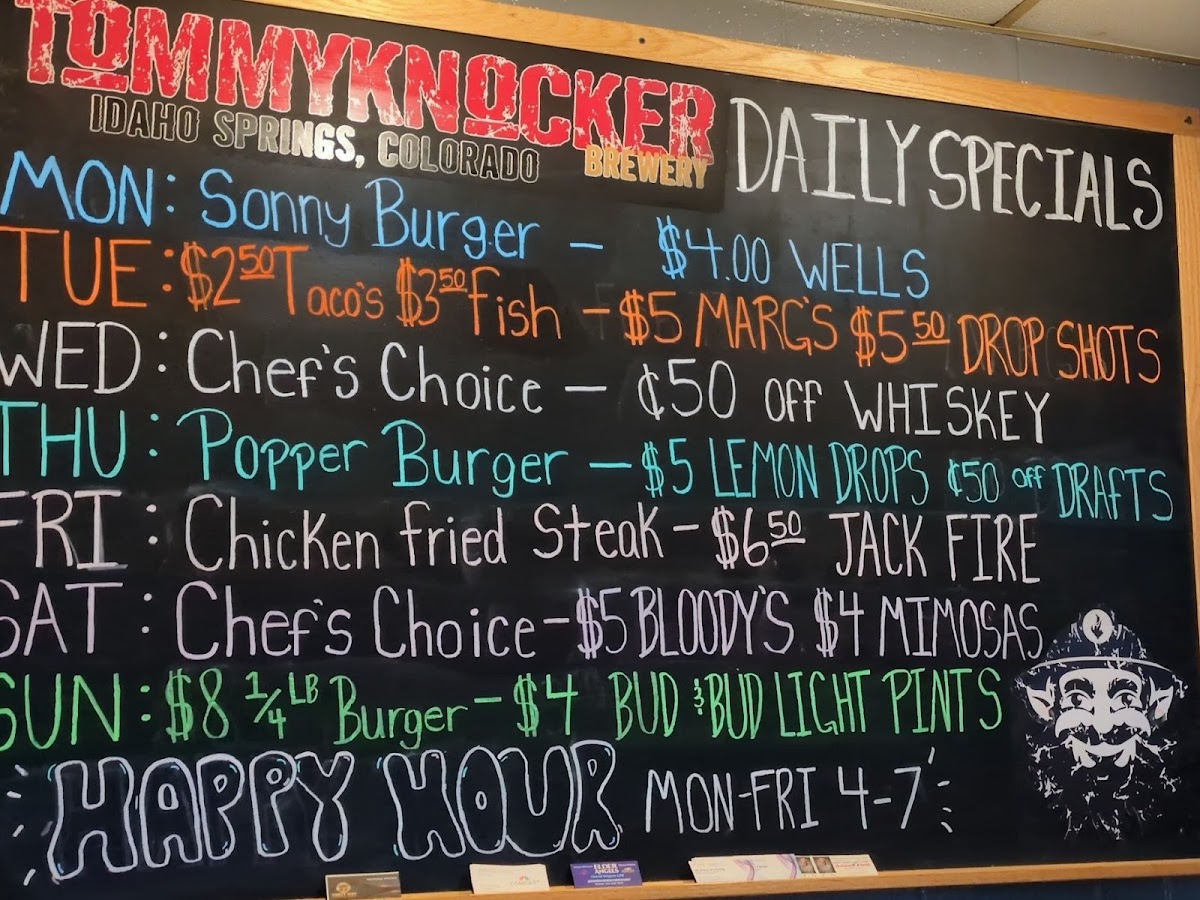 TOMMYKNOCKER
IDAHO SPRINGS, COLORADO
BREWERY
DAILY SPECIALS
MON: Sonny Burger – $4.00 WELLS
TUE: $2.50 Taco's $3.50 fish – $5 MARG'S $5.50 DROP SHOTS
WED: Chef's Choice – ¢50 off WHISKEY
THU: Popper Burger – $5 LEMON DROPS ¢50 off DRAFTS
FRI: Chicken fried Steak – $6.50 JACK FIRE
SAT: Chef's Choice – $5 BLOODY'S $4 MIMOSAS
SUN: $8 1/4 LB Burger – $4 BUD & BUD LIGHT PINTS
HAPPY HOUR MON-FRI 4-7
ELDER